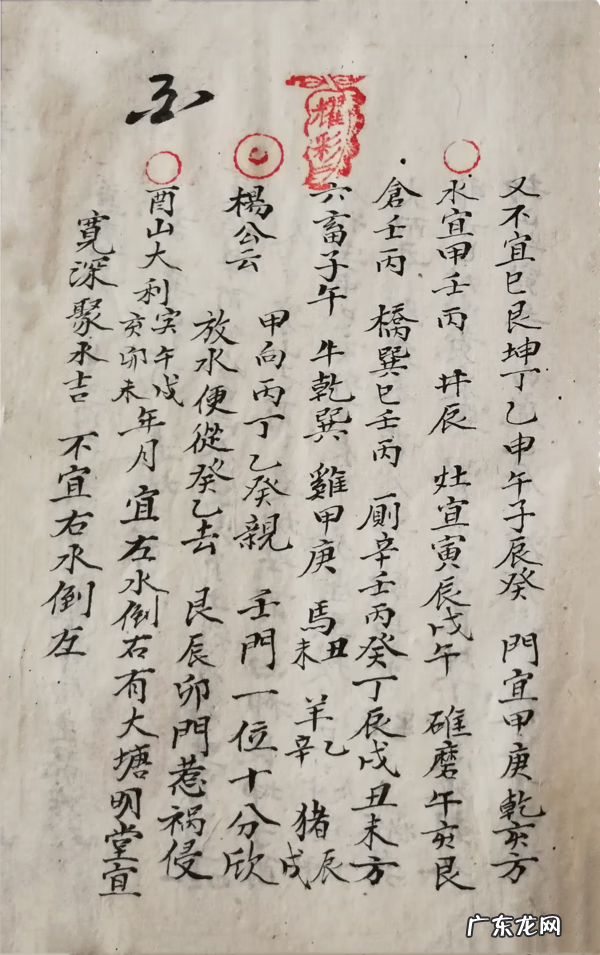 又不宜巳艮坤丁乙申午子辰癸　門宜甲庚乾亥方
水宜甲壬丙　井辰　灶宜寅辰戌午　碓磨午亥艮
倉壬丙　橋巽巳壬丙　厠辛壬丙癸丁辰戌丑未方
六畜子午　牛乾巽　雞甲庚　馬丑未　羊乙辛　猪辰戌
楊公云　甲向丙丁乙癸親　壬門一位十分欣
放水便從癸乙去　艮辰卯門惹祸侵
酉山大利寅午戌亥卯未年月　宜左水倒右有大塘明堂宜
寛深聚水吉　不宜右水倒左
耀彩
广东龙网